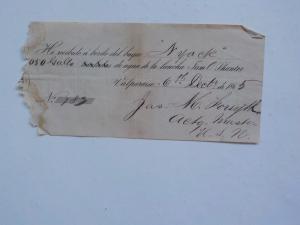 He recibido a bordo del buque "Nyack"
de agua de la lancha
Valparaiso 6th Decr. de 1865
Jas M. Forsyth
Actg. Master
U.S.N.